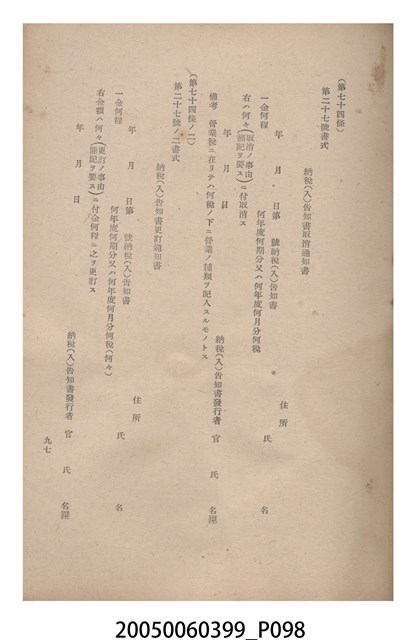 (第七十四條)
第二十七號書式
納稅(入)告知書取消通知書
年 月 日第 號納稅(入)告知書
住所
氏 名
何年度何期分又ハ何年度何月分何稅
一金何程
右ハ何々(取消ノ事由ヲ簡記ヲ要ス)ニ付取消ス
年 月 日
納稅(入)告知書發行者 官 氏 名㊞
備考 營業稅ニ在リテハ何稅ノ下ニ營業ノ種類ヲ記入スルモノトス
(第七十四條ノ二)
第二十七號ノ二書式
納稅(入)告知書更訂通知書
住所
氏 名
年 月 日第 號納稅(入)告知書
何年度何期分又ハ何年度何月分何稅(何々)
一金何程
右金額ハ何々(更訂ノ事由簡記ヲ要ス)ニ付金何程ニ之ヲ更訂ス
年 月 日
納稅(入)告知書發行者 官 氏 名㊞
九七
20050060399_P098